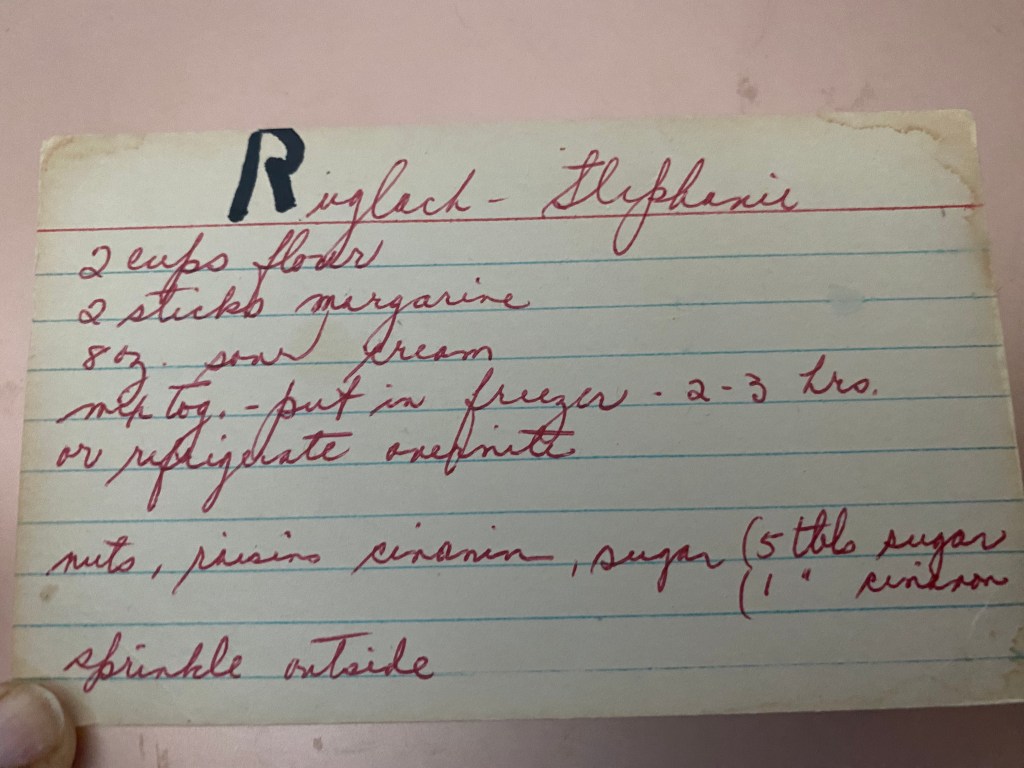 Ruglach - Stephanie
2 cups flour
2 sticks margarine
8 oz. sour cream
mix tog. - put in freezer - 2-3 hrs.
or refrigerate overnite
nuts, raisins cinanin, sugar (5 tbls sugar
(1 " cinanon
sprinkle outside